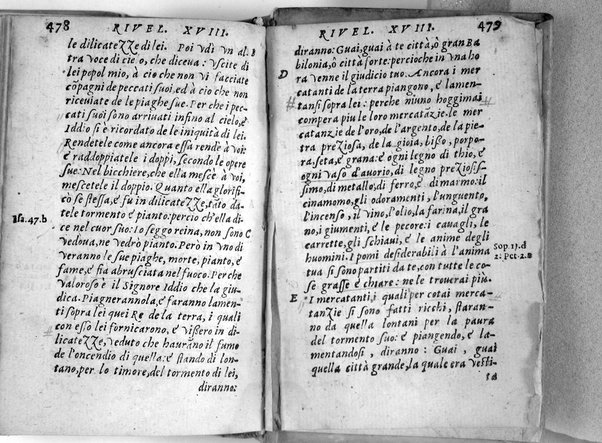 478 RIVEL. XVIII.
le dilicatezze di lei. Poi vdi vn al-
tra voce di cielo, che diceua: vscite di
lei popol mio, à ciò che non vi facciate
cõpagni de peccati suoi, ed à ciò che non
riceuiate de le piaghe sue. Per che i pec-
cati suoi sono arriuati infino al cielo, é
Iddio si è ricordato de le iniquità di lei.
Rendetele come ancora essa rende à voi
é raddoppiatele i doppi, secondo le opere
sue: Nel bicchiere, che ella mescè à voi,
mescetele il doppio. Quanto ella glorifi-
cò se stessa, é fu in dilicatezze, tãto da-
tele tormento é pianto: percio ch'ella di-
Isa. 47. b
ce nel cuor suo: Io seggo reina, non sono C
vedoua, ne vedrò pianto. Però in vno dì
verranno le sue piaghe, morte, pianto, é
fame, é fia abrusciata nel fuoco. Perche
valoroso è il Signore Iddio che la giu-
dica. Piagnerannola, é faranno lamen-
ti sopra lei quei Re de la terra, i quali
con esso lei fornicarono, é vissero in di-
licatezze, veduto che haurano il fumo
de l'oncendio di quella: é stando di lon-
tano, per lo timore, del tormento di lei,
diranno:
RIVEL. XVIII. 479
diranno: Guai, guai à te città, ò gran Ba
bilonia, ò città forte: percioche in vna ho
D
ra venne il giudicio tuo. Ancora i mer
catanti de la terra piangono, é lamen-
tansi sopra lei: perche niuno hoggimai
compera piu le loro mercatãzie. le mer
catanzie de l'oro, de l'argento, de la pie
tra preziosa, de la gioia, bisso, porpo-
ra, seta, é grana: é ogni legno di thio, é
ogni vaso d'auorio, di legno preziosis-
simo, di metallo, di ferro, é di marmo: il
cinamomo, gli odoramenti, l'unguento,
l'incenso, il vino, l'olio, la farina, il gra
no, i giumenti, é le pecore: i cauagli, le
carrette, gli schiaui, é le anime degli
Sop. 17. d
huomini. I pomi desiderabili à l'anima
2. Pet. 2. d
tua si sono partiti da te, con tutte le co-
se grasse é chiare: ne le trouerai piu.
E
I mercatanti, i quali per cotai merca-
tanzie si sono fatti ricchi, staran-
no da quella lontani per la paura
del tormento suo: é piangendo, é la-
mentandosi, diranno: Guai, guai
quella città grande, la quale era vesti-
ta